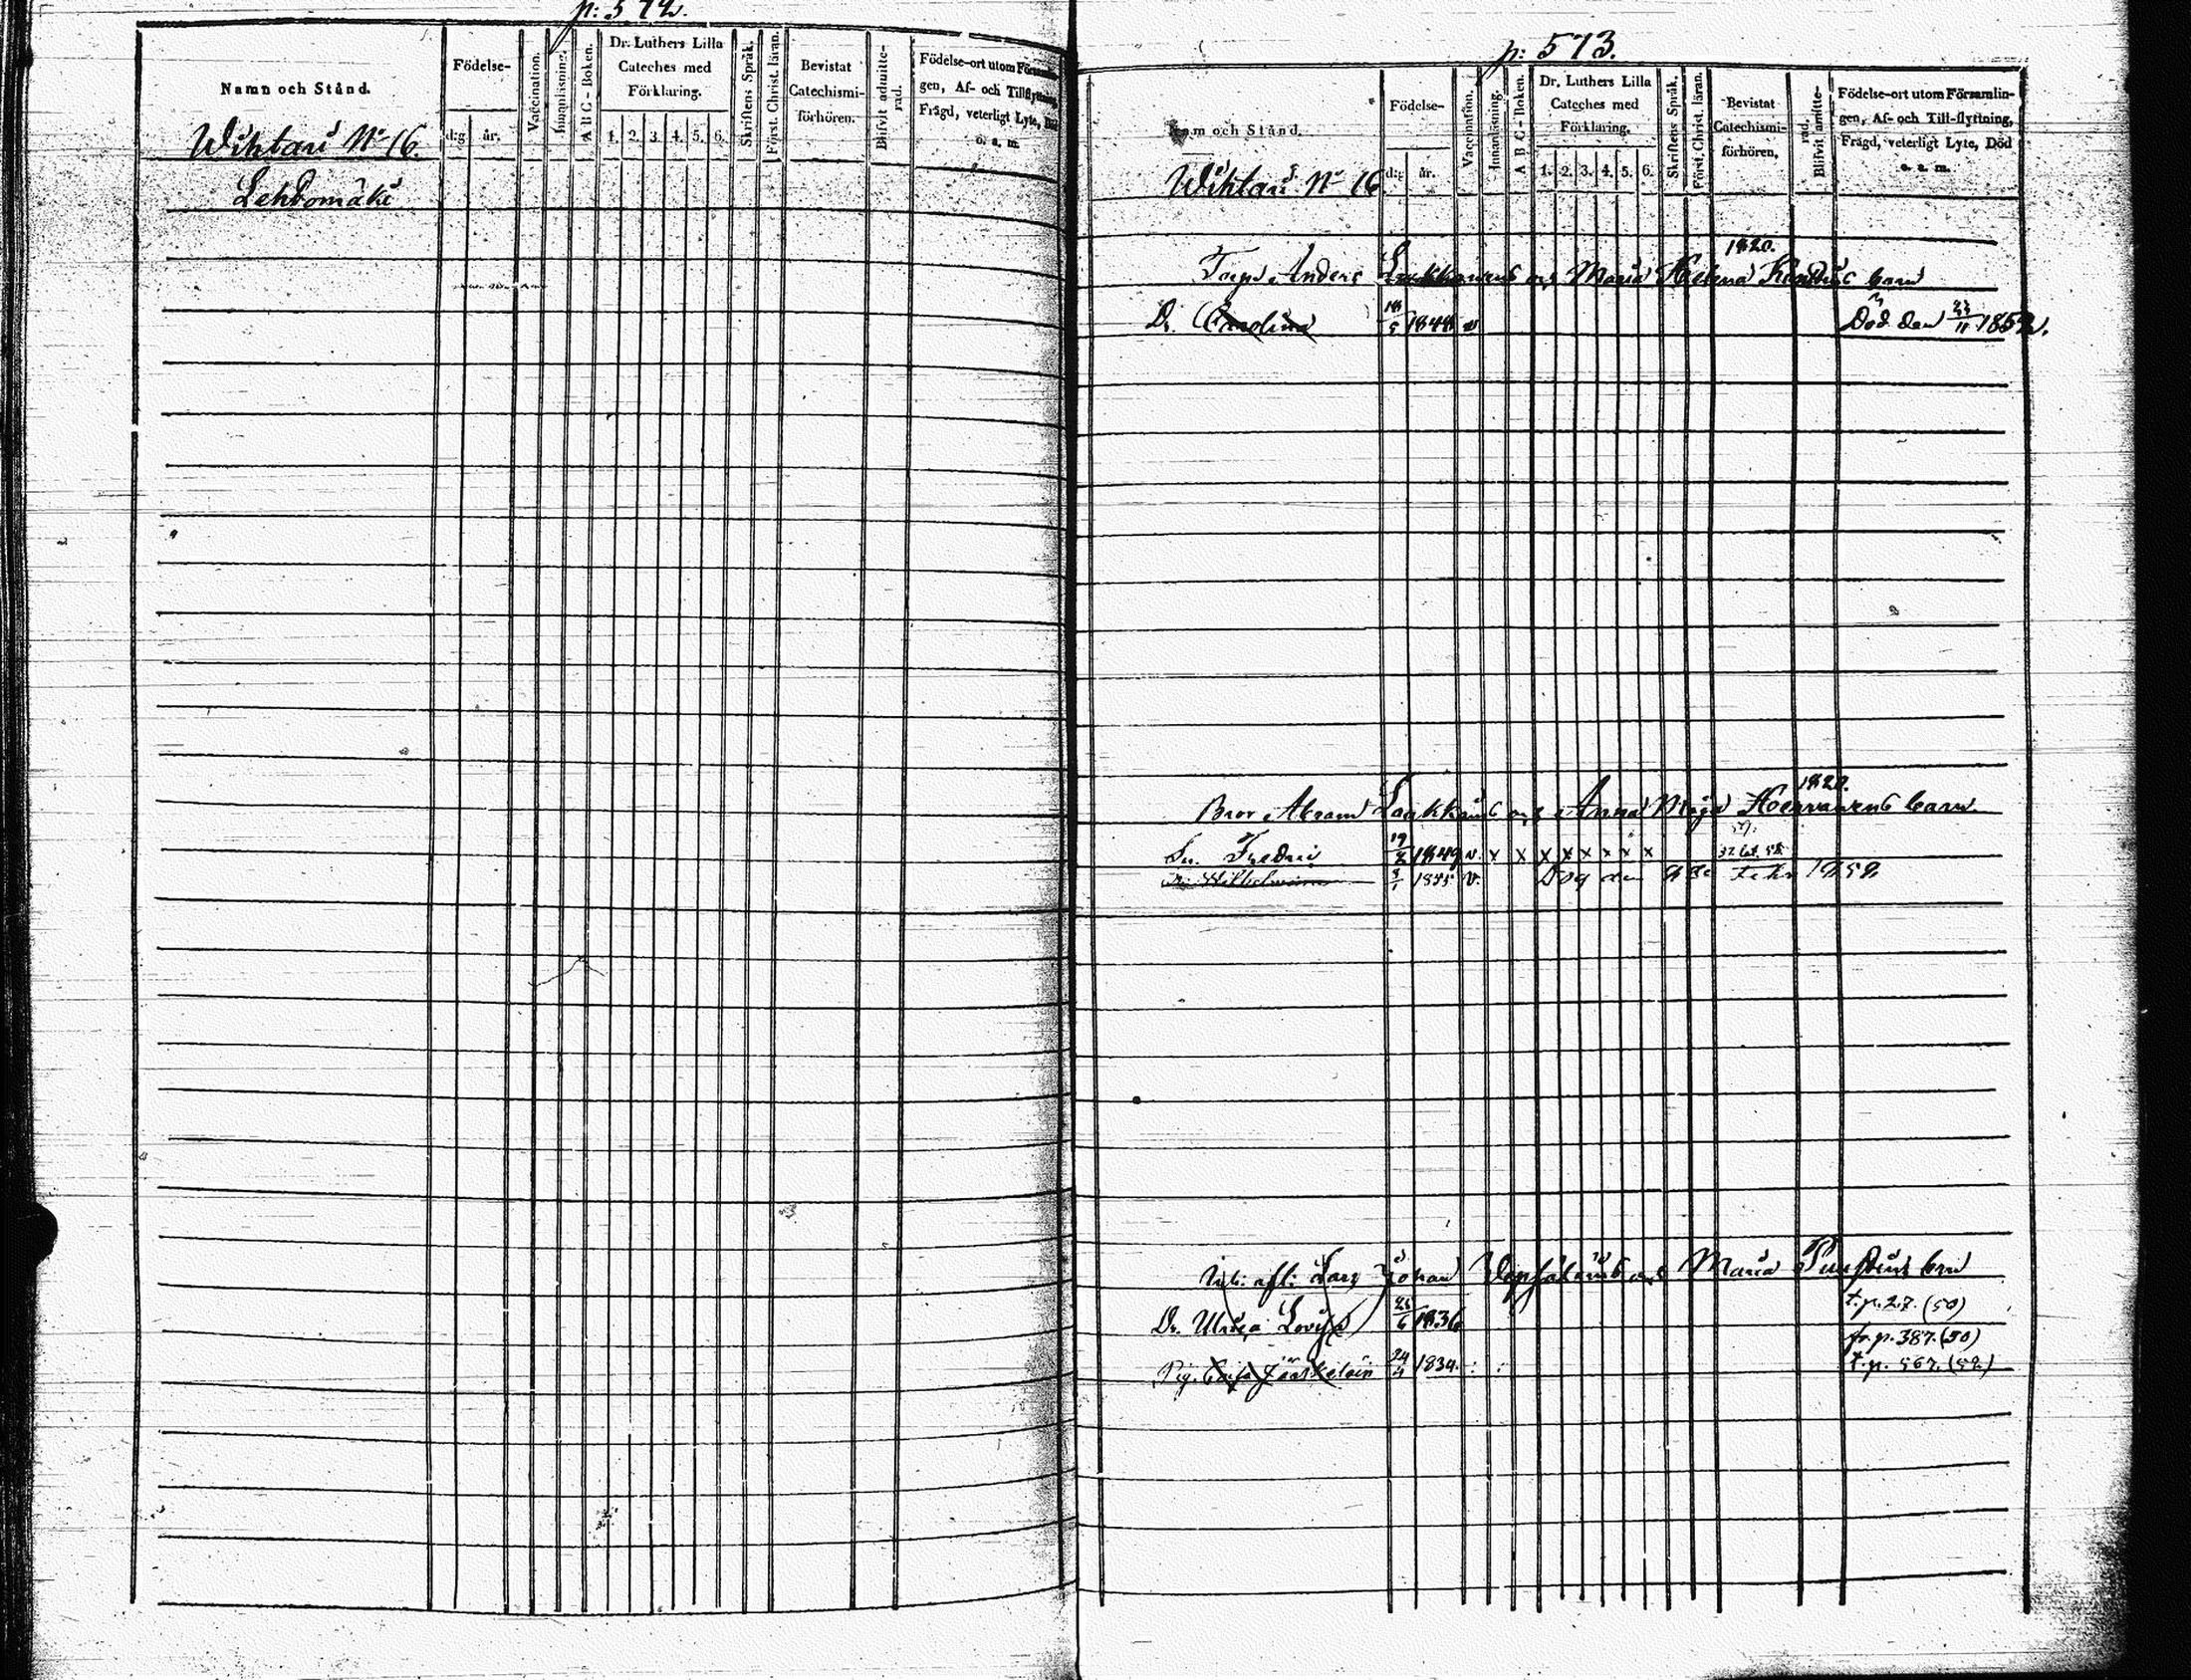 p: 572.
Namn och Stånd.
Födelse-
d:g år.
Vaccination.
Innanläsning.
A B C - Boken.
Dr. Luthers Lilla
Cateches med
Förklaring.
1. 2. 3. 4. 5. 6.
Skriftens Språk.
Först. Christ. läran.
Bevistat
Catechismi-
förhören.
Blifvit admitte-
rad.
Födelse-ort utom Församlin-
gen, Af- och Tillflyttning,
Frägd, veterligt Lyte, Död
o. a. m.
Wihtari N:o 16.
Lehtomäki
p: 573.
Namn och Stånd.
Födelse-
d:g år.
Vaccination.
Innanläsning.
A B C - Boken.
Dr. Luthers Lilla
Cateches med
Förklaring.
1. 2. 3. 4. 5. 6.
Skriftens Språk.
Först. Christ. läran.
Bevistat
Catechismi-
förhören.
Blifvit amitte-
rad.
Födelse-ort utom Församlin-
gen, Af- och Till-flyttning,
Frägd, veterligt Lyte, Död
o. a. m.
Wihtari N:o 16
1820.
Torp. Anders och Maria Helena barn
Dr. Carolina 18/5 1844 v Död den 23/11 1852.
1820.
Bror Abram Laakkains och Anna Maja barn
Sn. Fredric 19/2 1849 v. x x x x x x x x
Dr. Wilhelmina 3/1 1855 v. Dog den Febr 1858
Lars Johan och Maria brn
Dr. Ulrica Lovisa 26/6 1836 t.p. 27. (50)
fr. p. 387. (50)
Pig. Jääskeläin 24/4 1834. t.p. 567. (52)